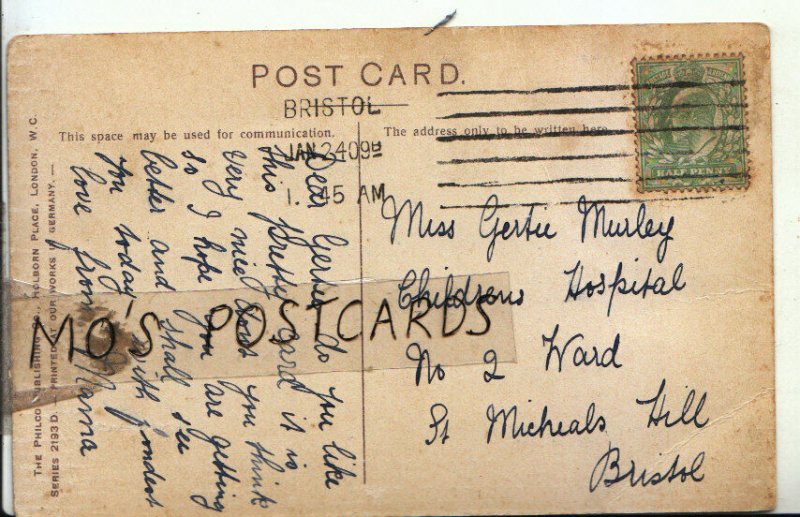 POST CARD.
BRISTOL
JAN 24 09
1. 45 AM
HALF PENNY
This space may be used for communication.
The address only to be written here.
Dear Gertie do you like
this pretty card it is
very nice dont you think
so I hope you are getting
better and shall see
you today with fondest
love from Mama
Miss Gertie Murley
Childrens Hospital
No 2 Ward
St Micheals Hill
Bristol
THE PHILCO PUBLISHING CO., HOLBORN PLACE, LONDON, W.C.
SERIES 2193 D. PRINTED AT OUR WORKS IN GERMANY.
MO'S POSTCARDS